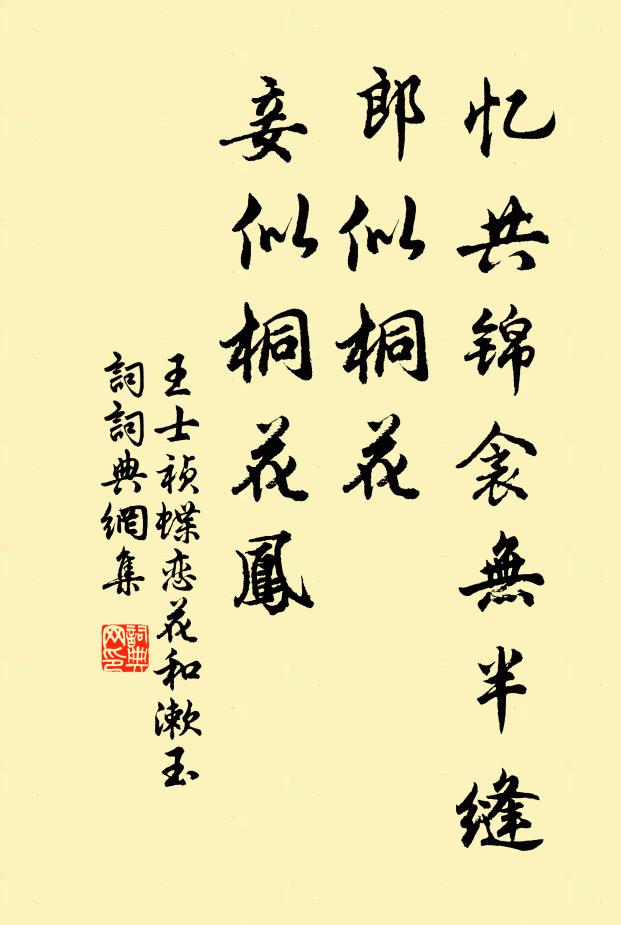 忆共锦衾無半缝
郎似桐花
妾似桐花鳳
王士祯蝶恋花和漱玉
詞詞典網集
詞典
网印